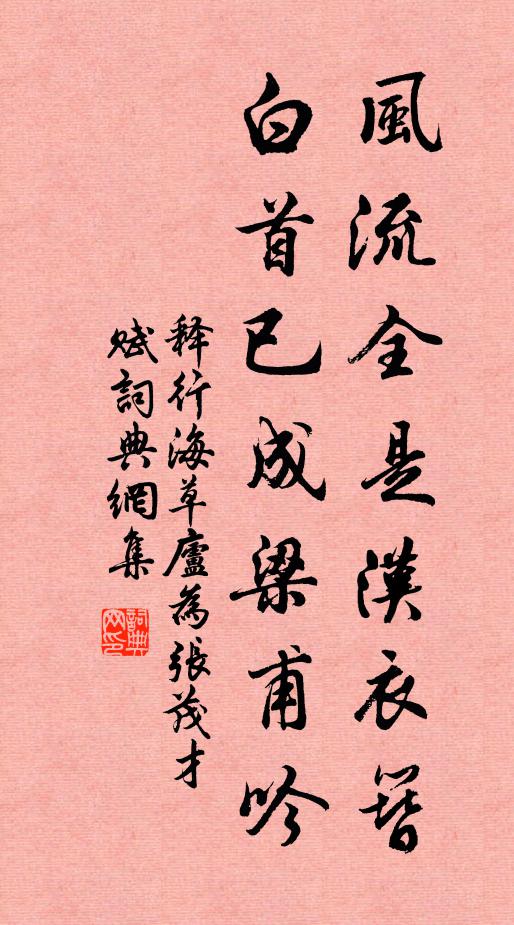 風流全是漢衣簪
白首已成梁甫吟
释行海草廬為張茂才
賦詞典網集
詞典网印